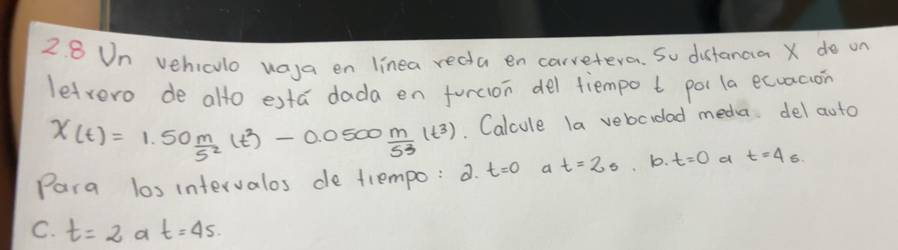 2.8 Un vehiculo viaja en línea recta en carretera. Su distancia X de un
letrero de alto está dada en función del tiempo t por la ecuación
X(t) = 1.50 m/s² (t²) - 0.0500 m/s³ (t³). Calcule la velocidad media del auto
Para los intervalos de tiempo: a. t=0 a t=2s. b. t=0 a t=4s.
C. t= 2 a t=4s.